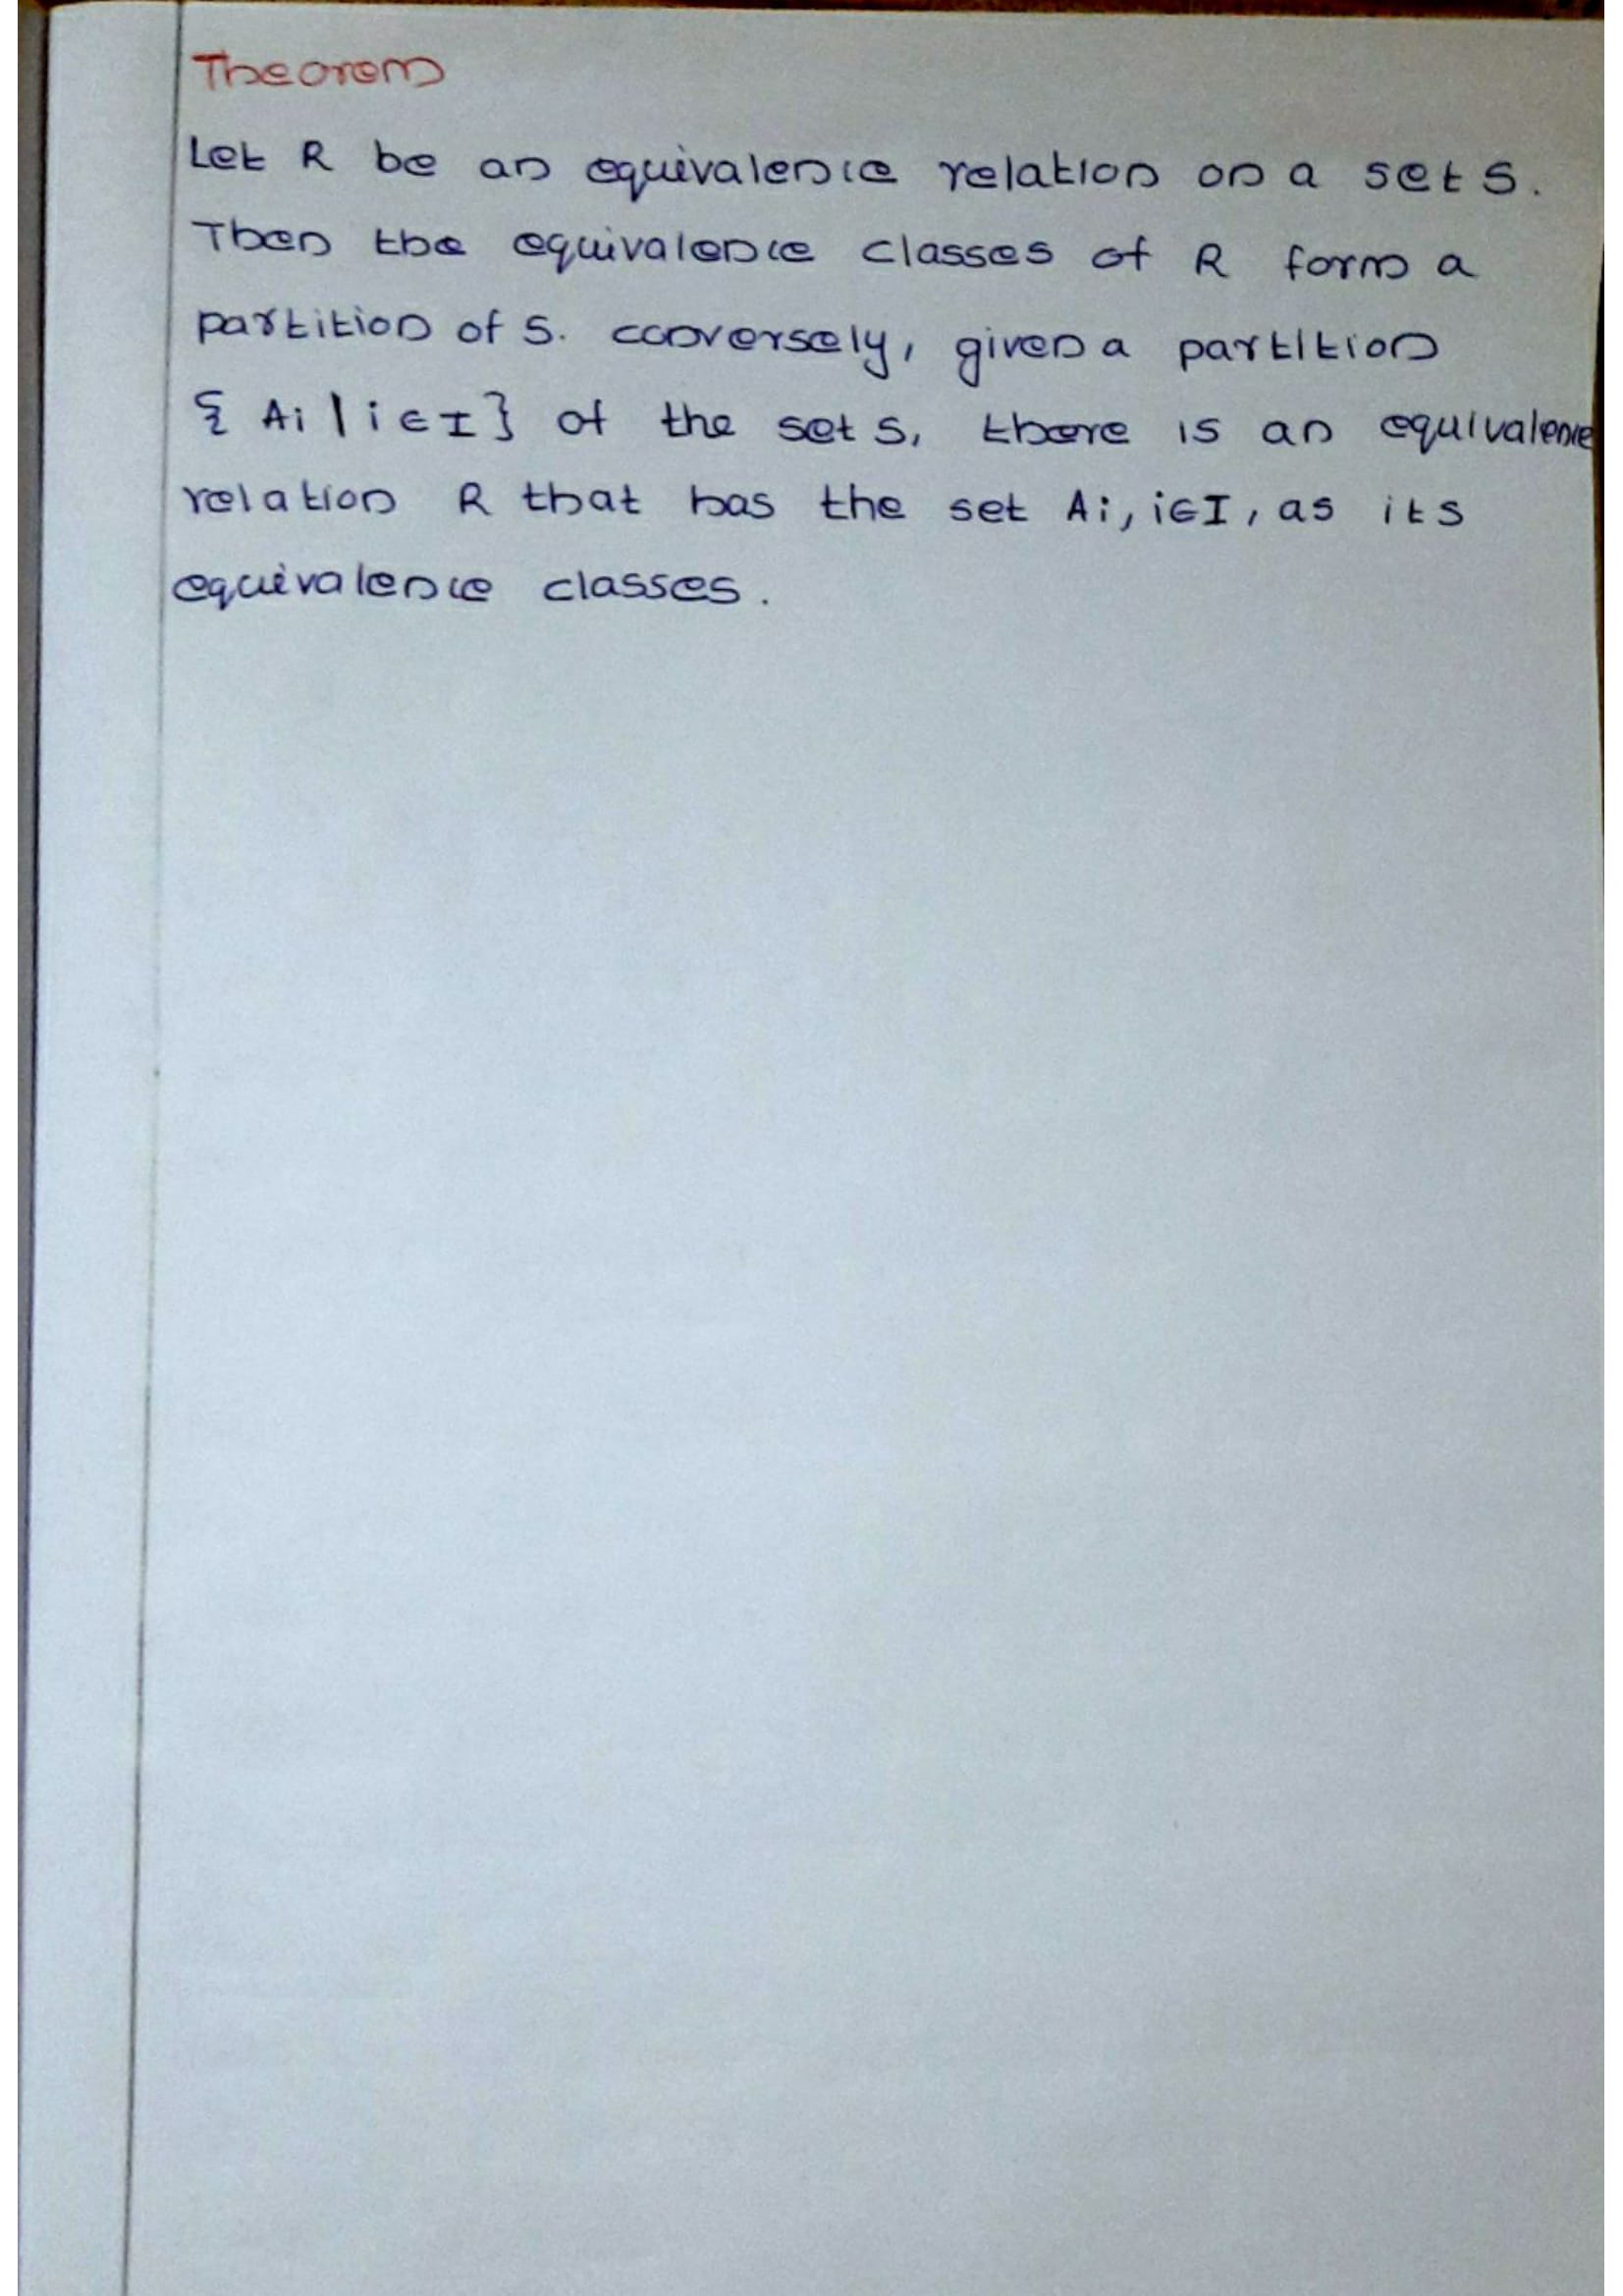 Theorem
Let R be an equivalence relation on a set S.
Then the equivalence classes of R form a
partition of S. conversely, given a partition
{ Ai | i ∈ I } of the set S, there is an equivalence
relation R that has the set Ai, i∈I, as its
equivalence classes.